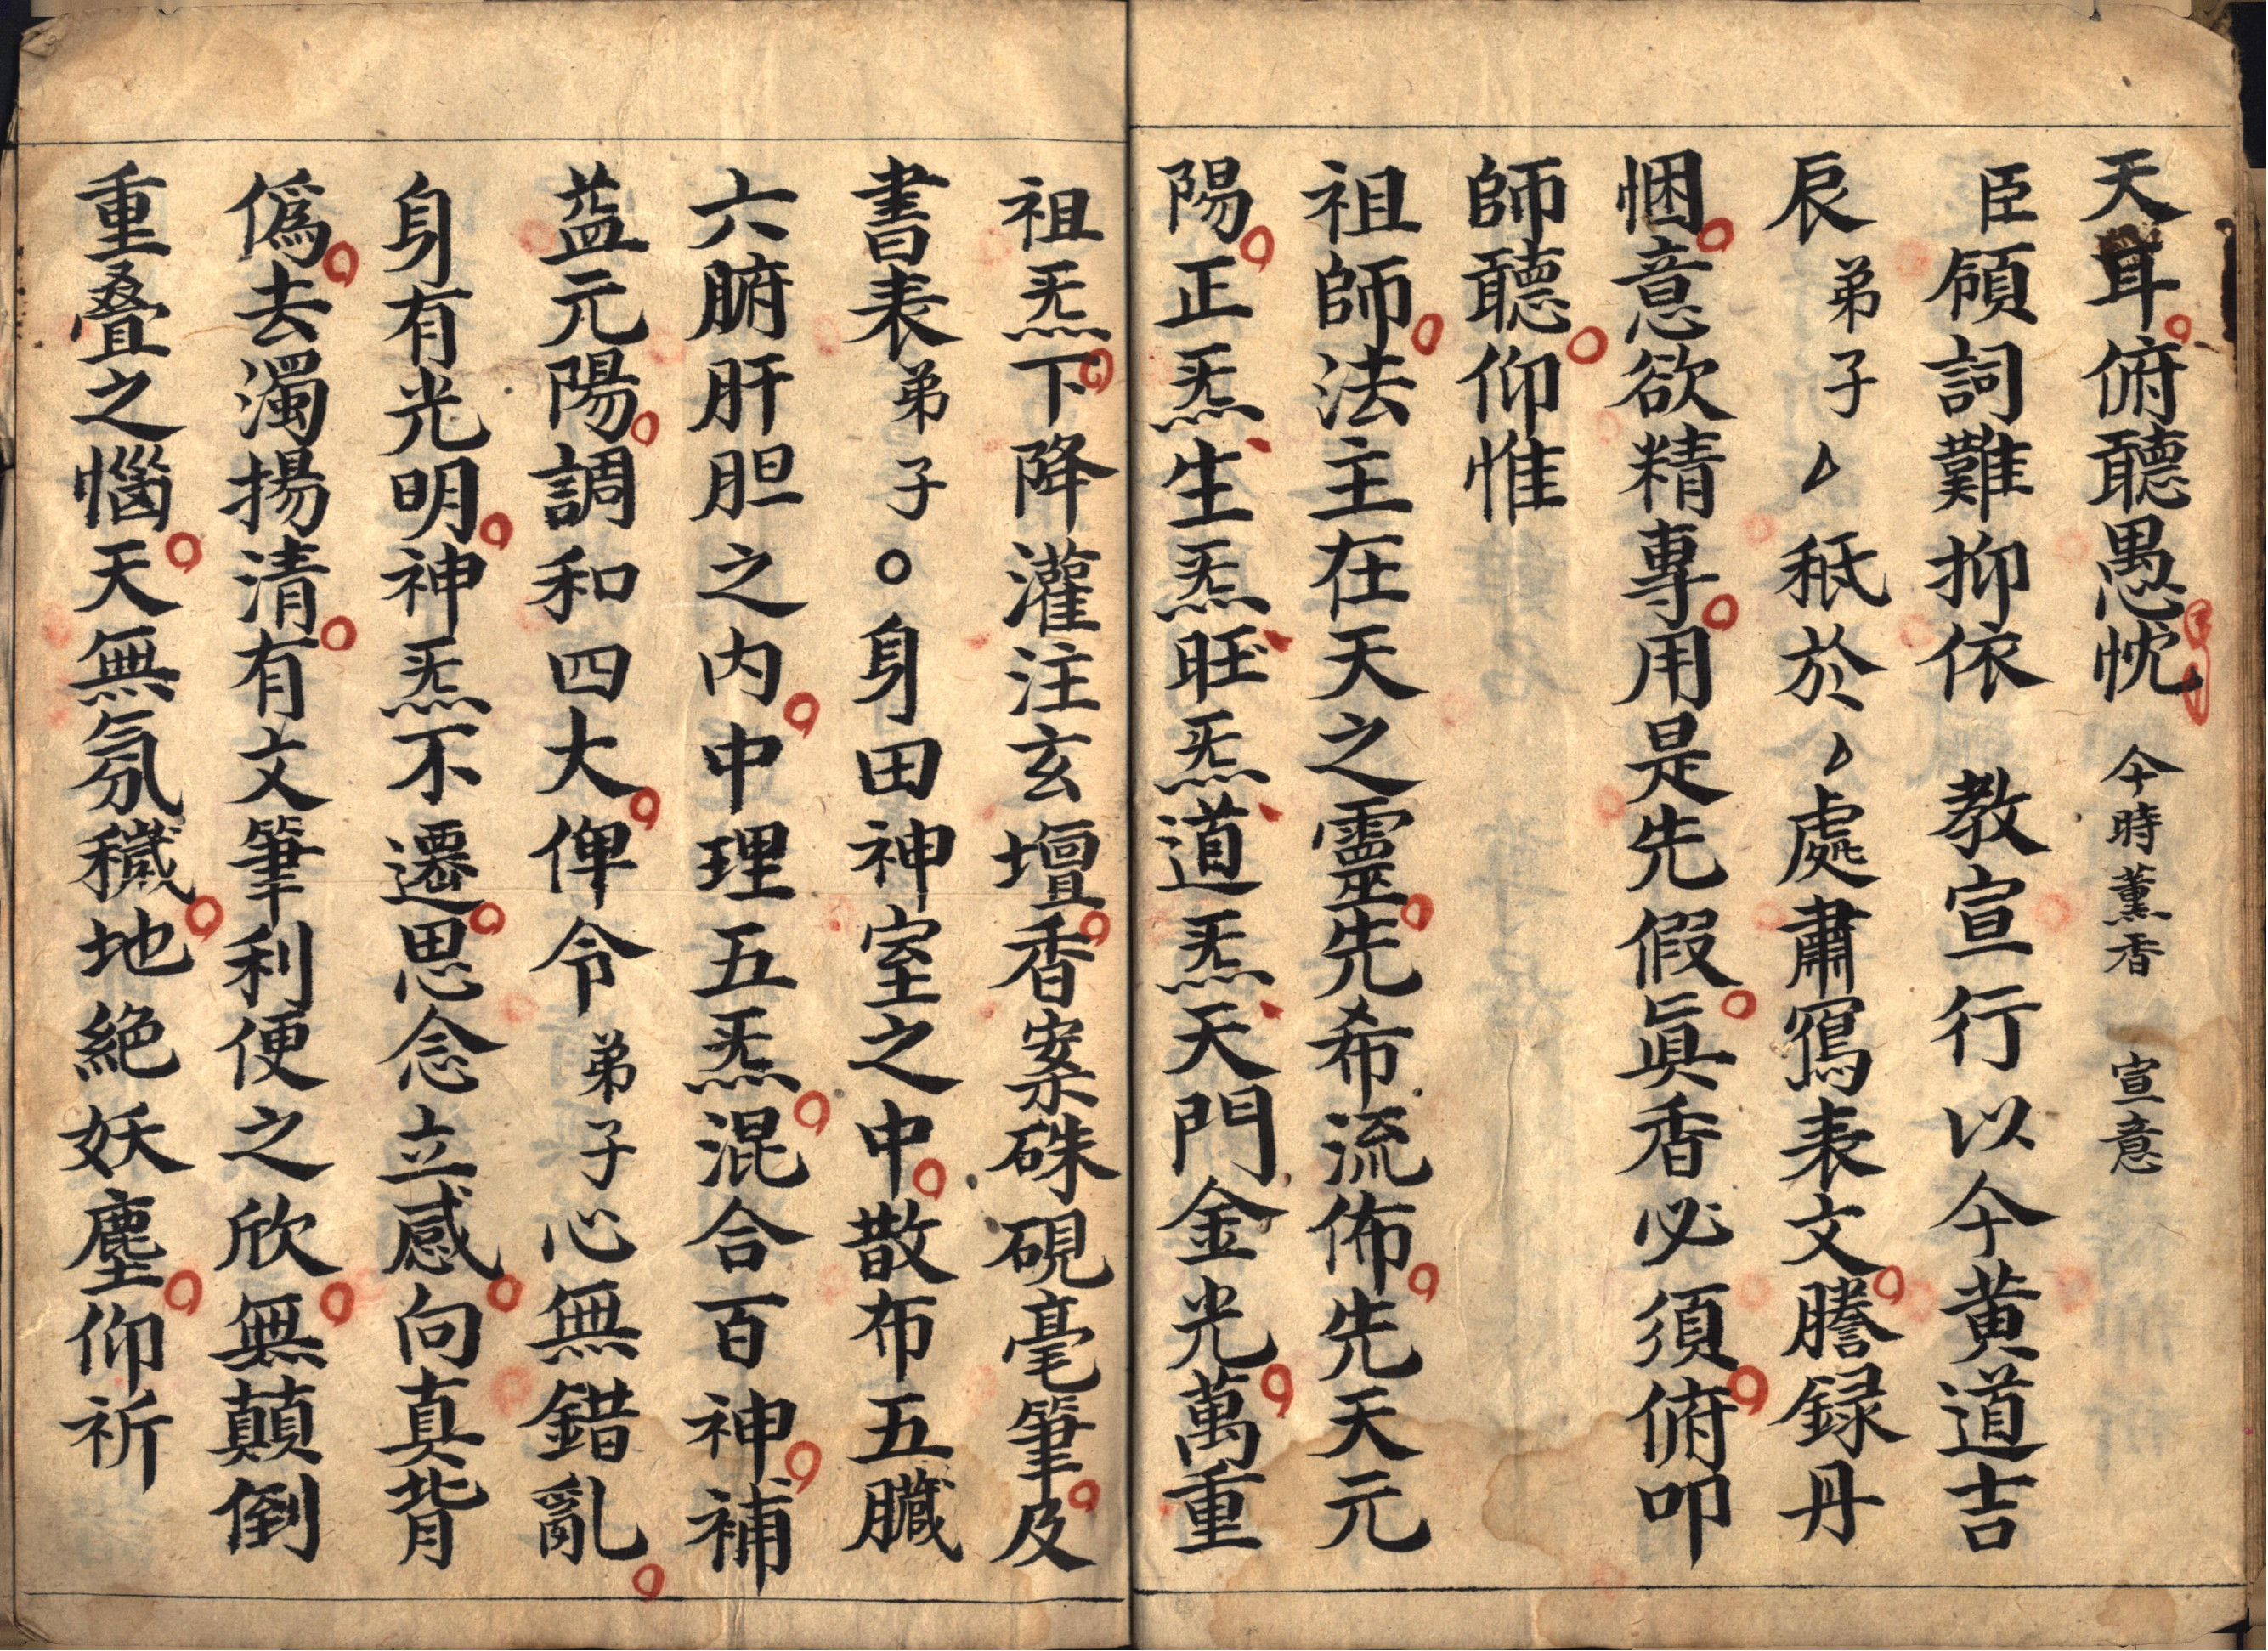 天耳俯聽愚忱 今時薰香 宣意
臣領詞難抑依 教宣行以今黃道吉
辰弟子 秖於 處肅寫表文謄録丹
悃意欲精專用是先假眞香必須俯叩
師聽仰惟
祖師法主在天之靈先希流佈先天元
陽正炁生炁旺炁道炁天門金光萬重
祖炁下降灌注玄壇香案硃硯毫筆及
書表弟子○身田神室之中散布五臟
六腑肝胆之内中理五炁混合百神補
益元陽調和四大俾令弟子心無錯亂
身有光明神炁不遷思念立感向真背
偽去濁揚清有文筆利便之欣無顛倒
重叠之惱天無氛穢地絕妖塵仰祈